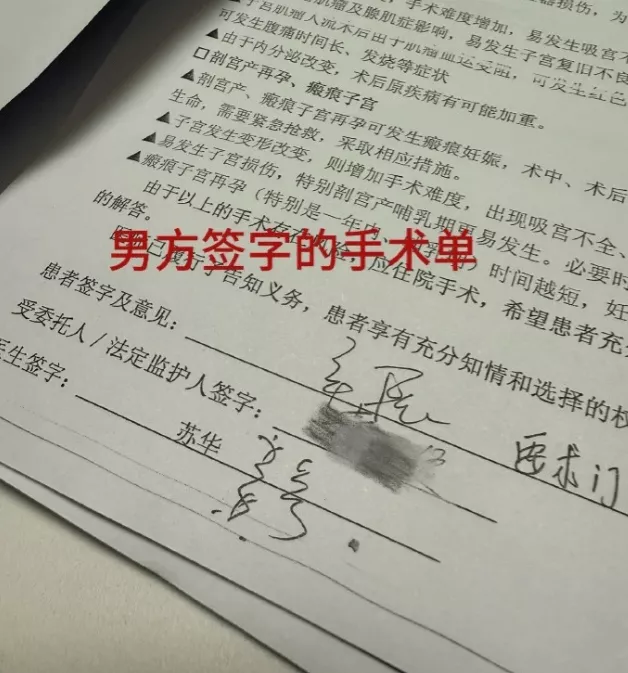 手术难度增加,易发生吸宫不
子宫肌瘤及腺肌症影响,易发生子宫复旧不良
子宫肌瘤人流术后由于肌瘤血运受阻,可发生红色
可发生腹痛时间长、发烧等症状
▲由于内分泌改变,术后原疾病有可能加重。
□剖宫产再孕、瘢痕子宫
▲剖宫产、瘢痕子宫再孕可发生瘢痕妊娠,术中、术后
生命,需要紧急抢救,采取相应措施。
▲子宫发生变形改变,则增加手术难度,出现吸宫不全、
▲易发生子宫损伤,特别剖宫产哺乳期更易发生。必要时
▲瘢痕子宫再孕(特别是一年 时间越短,妊
由于以上的手术存在 应住院手术,希望患者充分
的解答。
男方签字的手术单
已履行了告知义务,患者享有充分知情和选择的权
患者签字及意见:
受委托人/法定监护人签字:
要求门
医生签字:
苏华